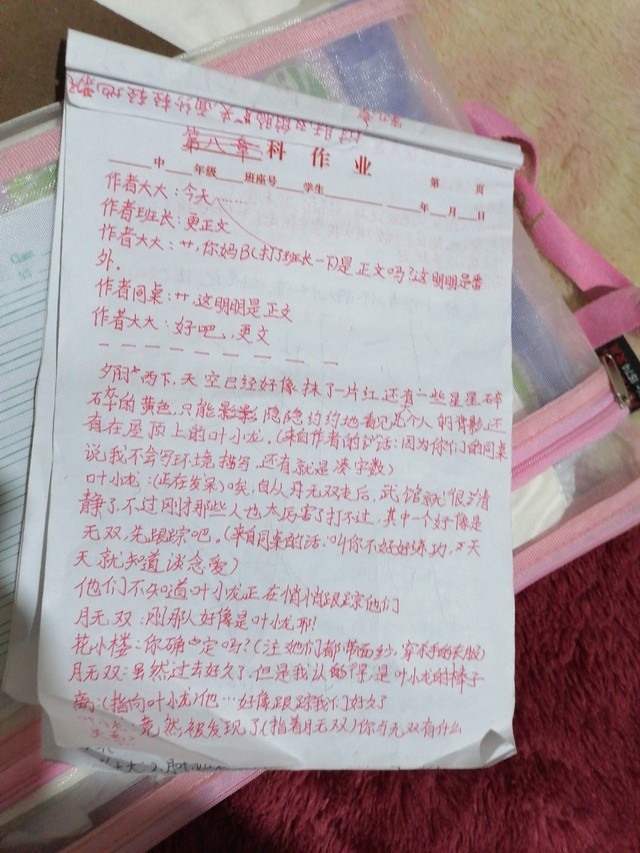 第八章 科作业
第 页
中 年级 班座号 学生 年 月 日
作者大大:今天……
作者班长:更正文
作者大大:艹,你妈B(打了班长一下)是正文吗?这明明是番
外。
作者同桌:艹这明明是正文
作者大大:好吧,更文
夕阳西下,天空已经好像抹了一片红,还有一些星星碎
碎的黄色,只能影影隐隐约约地看见几个人的背影,还
有在屋顶上的叶小龙。(来自作者的话:因为你们的同桌
说我不会写环境描写,还有就是凑字数)
叶小龙:(正在发呆)唉,自从月无双走后,武馆就很清
静了,不过刚才那些人也太厉害了打不过,其中一个好像是
无双,先跟踪吧。(来自同桌的话:叫你不好好练功,天天
天就知道谈恋爱)
他们不知道叶小龙正在悄悄跟踪他们
月无双:刚那人好像是叶小龙耶!
花小楼:你确定吗?(注她们都带面纱,穿
月无双:虽然过去好久了,但是我认的得是叶小龙的棒子
离:(指向叶小龙)他…好像跟踪我们好久了
竟然被发现了(指着月无双)你与无双有什么